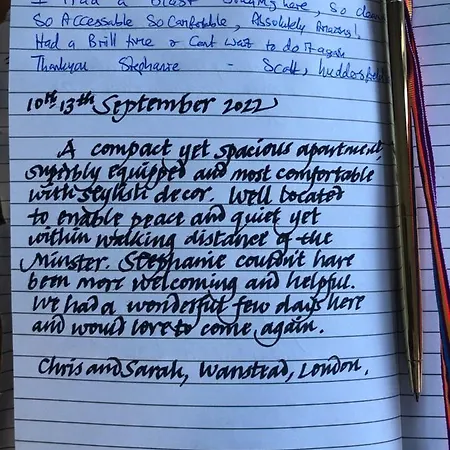 I had a blast staying here, so clean
So Accessable So Comfortable, Absolutely Amazing!
Had a Brill time & Cant wait to do it again
Thankyou Stephanie - Scott, huddersfield
10th 13th September 2022
A compact yet spacious apartment,
superbly equipped and most comfortable
with stylish decor. Well located
to enable peace and quiet yet
within walking distance of the
Minster. Stephanie couldn't have
been more welcoming and helpful.
We had a wonderful few days here
and would love to come again.
Chris and Sarah, Wanstead, London.